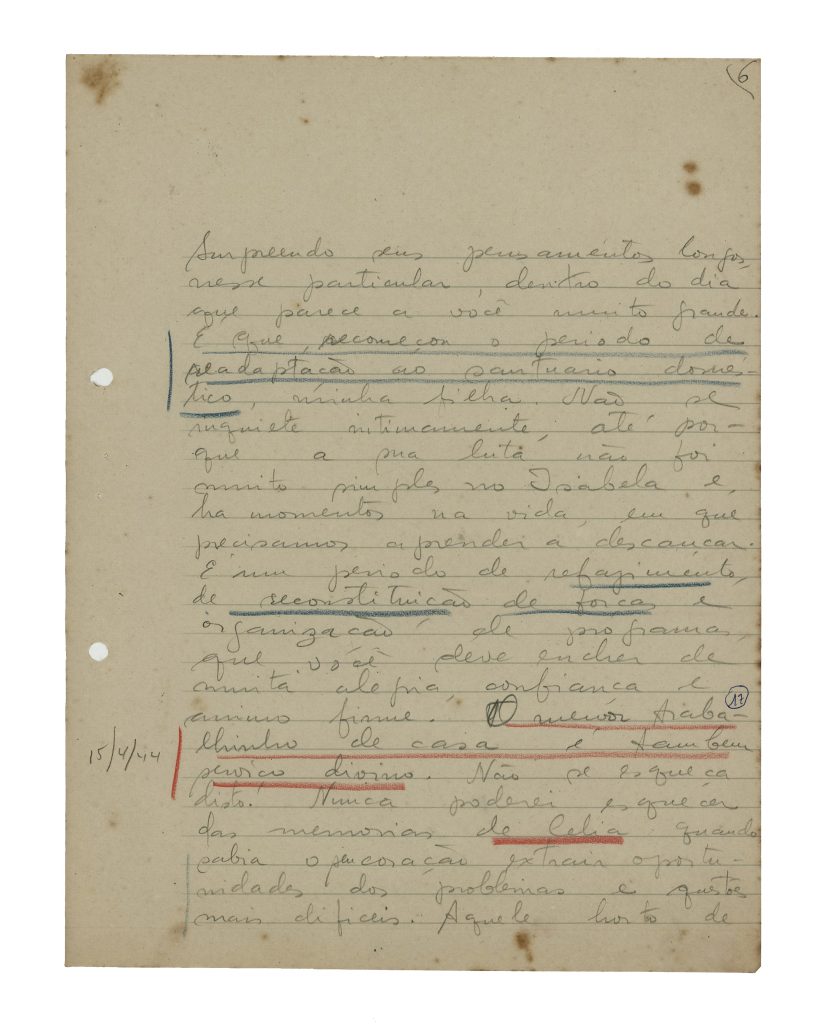 6
Surpreendo seus pensamentos longos,
nesse particular, dentro do dia
que parece a você muito grande.
É que, recomeçou o periodo de
readaptação ao santuario domés-
tico, minha filha. Não se
inquiete intimamente, até por-
que a sua luta não foi
muito simples no Isabela e,
ha momentos na vida, em que
precisamos aprender a descançar.
É um periodo de refazimento,
de reconstituição de forças e
organização de programas,
que você deve encher de
muita alegria, confiança e
animo firme. O menor traba-
17
lhinho de casa é tambem
15/4/44
serviço divino. Não se esqueça
disto. Nunca poderei esquecer
das memorias de Celia quando
sabia o seu coração extrair oportu-
nidades dos problemas e questões
mais dificeis. Aquele horto de